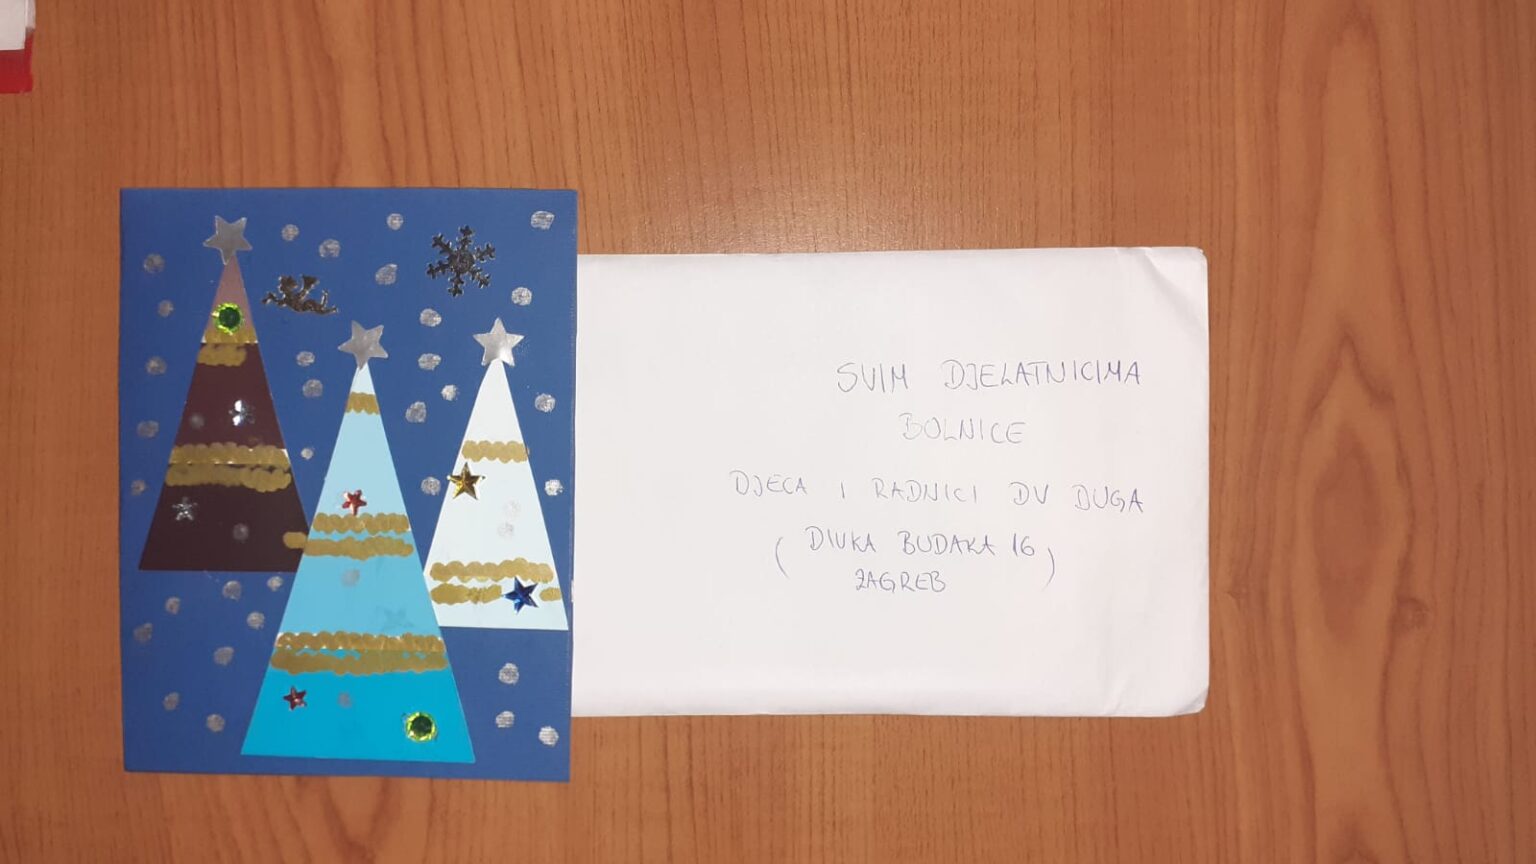 SVIM DJELATNICIMA
BOLNICE
DJECA I RADNICI DV DUGA
( DIVKA BUDAKA 16 )
ZAGREB